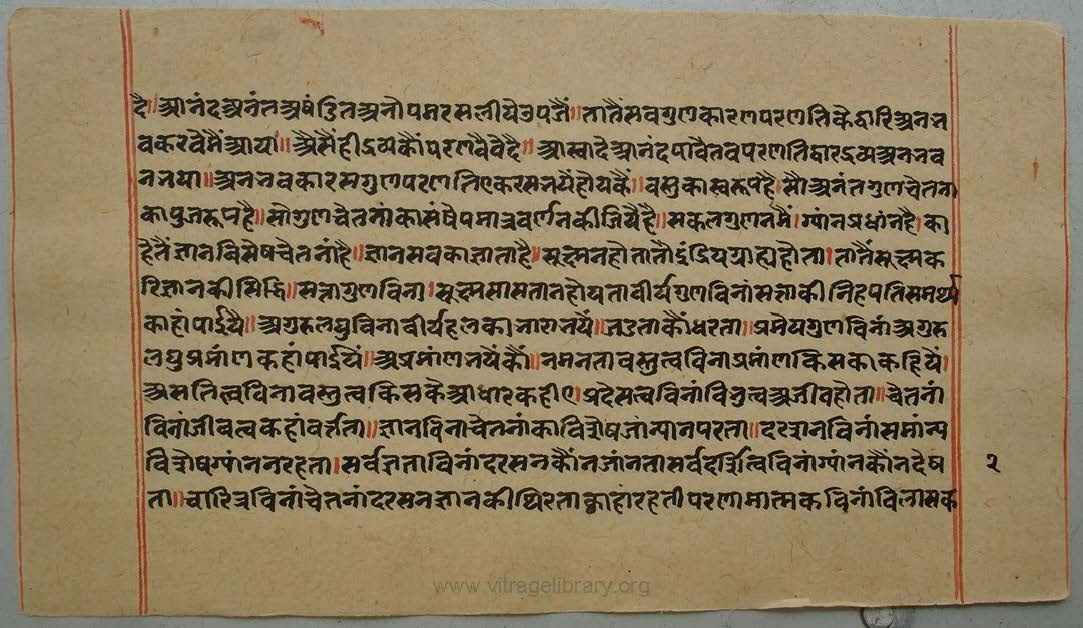 है॥आनंदअनंतअषंडितअनोपमरसलीयेउपजैं॥तातैंसवगुणकारणपरणतिकेद्वारिअननव
वकरवेमैंआया॥अैसैंहीद्रव्यकौंपरणवैवेदै॥आस्वादैआनंदपावैतवपरणतिद्वारद्रव्यअननव
ननया॥अननवकारसगुणपरणतिएकरसनयेंहोयकैं॥वस्तुकास्वरूपहै।सौअनंतगुणचेतना
कापुजरूपहै॥सोगुणचेतनांकासंषेपमात्रवर्णनकीजियैहै॥सकलगुणनमैं।ग्यांनप्रधांनहै।का
हेतैंज्ञानविसेषचेतनांहै॥ज्ञानसवकाज्ञाताहै॥सूक्ष्मनहोतातौइंद्रियग्राह्यहौता।तातैंसूक्ष्मक
रिज्ञानकीसिद्धि॥सत्तागुणविना।सूक्ष्मसासतानहोयतावीर्यगुणविनांसत्ताकीनिहपतिसमर्थ्य
काहांपाईयै॥अगुरुलघुविनावीर्यहलकानारानयें॥जडताकौंधरता॥प्रमेयगुणविनांअगुरु
लघुप्रमांणकहांपाईयें॥अप्रमांणनयेंकौं॥नमनतावस्तुत्वविनाप्रमांणकिसकाकहियैं।
असतित्वविनावस्तुत्वकिसकैआधारकहीए।प्रदेसत्वविनांविभुत्वअजीवहोता॥चेतनां
विनांजीवत्वकहांवर्त्तता॥ज्ञानविनाचेतनांकाविशेषजांन्यानपरता॥दरशनविनांसमांन्य
विशेषग्यांननरहता।सर्वज्ञताविनांदरसनकौंनजांनतासर्वदर्शित्वविनांग्यांनकौंनदेष
ता॥चारित्रविनांचेतनांदरसनज्ञानकीथिरताकाहांरहतीपरणामात्मकविनांविलासक
२
www.vitragelibrary.org